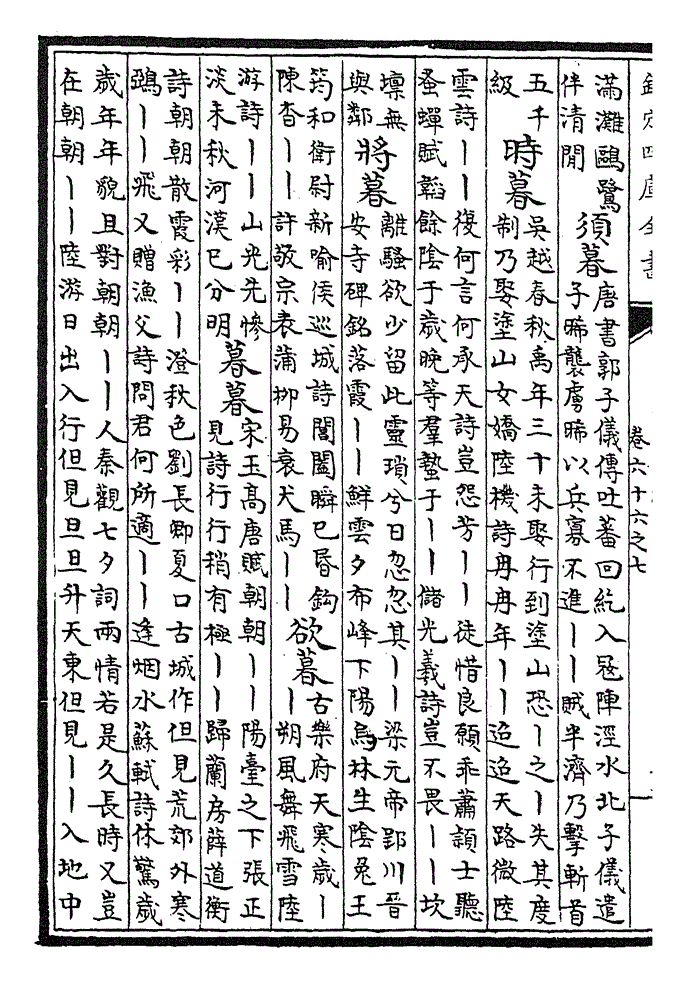 欽定四庫全書
卷六十六之七
滿灘鷗鷺
伴清閒
須暮
唐書郭子儀傳吐蕃回紇入冦陣涇水北子儀遣
子晞襲虜晞以兵寡不進丨丨賊半濟乃擊斬首
五千
級
時暮
吳越春秋禹年三十未娶行到塗山恐丨之丨失其度
制乃娶塗山女嬌陸機詩冉冉年丨丨迢迢天路微陸
雲詩丨丨復何言何承天詩豈怨芳丨丨徒惜良願乖蕭頴士聽
蚤蟬賦韜餘陰于歲晚等羣蟄于丨丨儲光羲詩豈不畏丨丨坎
壈無
與鄰
將暮
離騷欲少留此靈瑣兮日忽忽其丨丨梁元帝郢川晉
安寺碑銘落霞丨丨鮮雲夕布峰下陽烏林生陰兔王
筠和衛尉新喻侯巡城詩閶闔瞬已昏鈎
陳杳丨丨許敬宗表蒲栁易衰犬馬丨丨
欲暮
古樂府天寒歲丨
丨朔風舞飛雪陸
游詩丨丨山光先慘
淡未秋河漢已分明
暮暮
宋玉高唐賦朝朝丨丨陽臺之下張正
見詩行行稍有極丨丨歸蘭房薛道衡
詩朝朝散霞彩丨丨澄秋色劉長卿夏口古城作但見荒郊外寒
鵶丨丨飛又贈漁父詩問君何所適丨丨逢烟水蘇軾詩休驚歲
歲年年貌且對朝朝丨丨人秦觀七夕詞兩情若是久長時又豈
在朝朝丨丨陸游日出入行但見旦旦升天東但見丨丨入地中